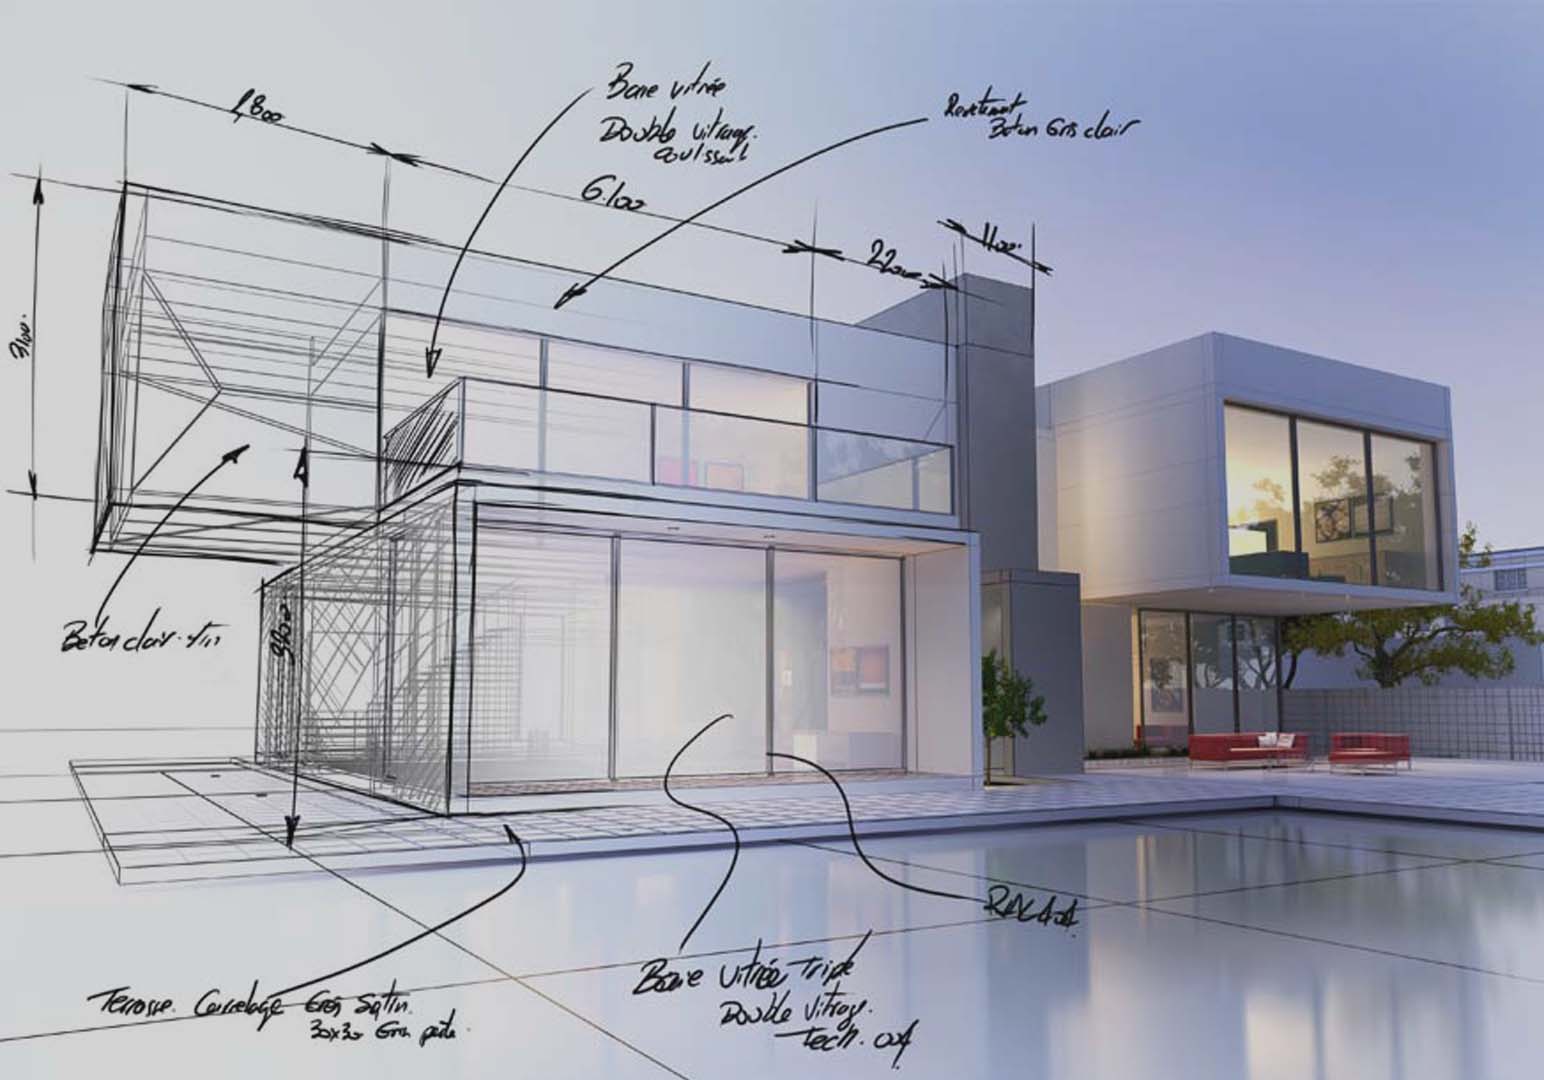 1,800
Baie vitrée
Double vitrage.
coulissant
Revetement
Beton Gris clair
6.100
2200
1100.
3100.
Beton clair
Terrasse. Carrelage Grès Satin.
30x30
Baie vitrée Triple
Double Vitrage.
Tech.